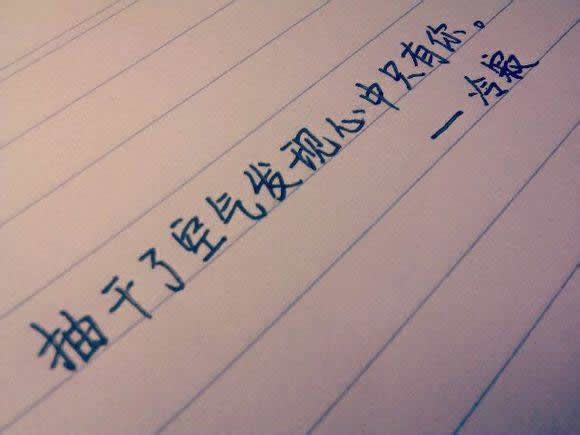 抽干了空气发现心中只有你。
一冷寂